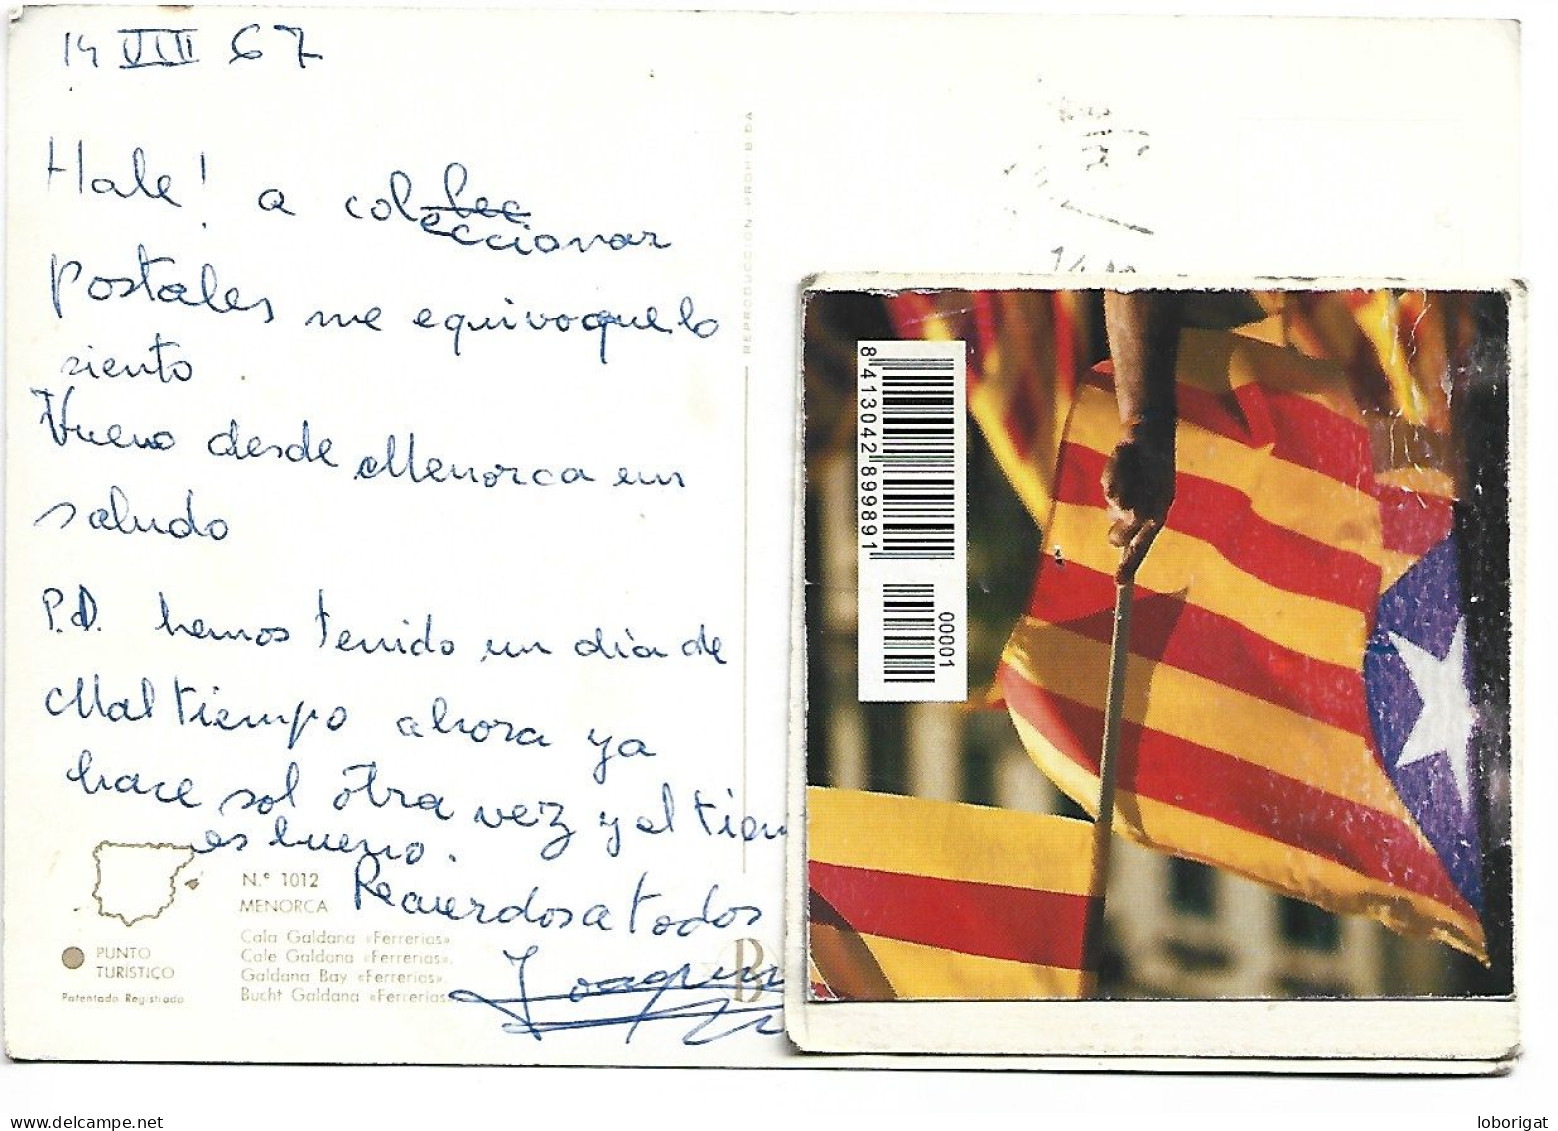 14 VIII 67
Hale! a coleccionar
postales me equivoque lo
siento
Vueno desde Menorca un
saludo
P.D. hemos tenido un día de
Mal tiempo ahora ya
hace sol otra vez y el tiem
es bueno.
Recuerdos a todos
Joaquin
N.º 1012
MENORCA
Cala Galdana «Ferrerias»
Cale Galdana «Ferrerias».
Galdana Bay «Ferrerias».
Bucht Galdana «Ferrerias»
PUNTO
TURÍSTICO
Patentado Registrado
B
REPRODUCCION PROHIBIDA
8 413042 899891
00001
loborigat